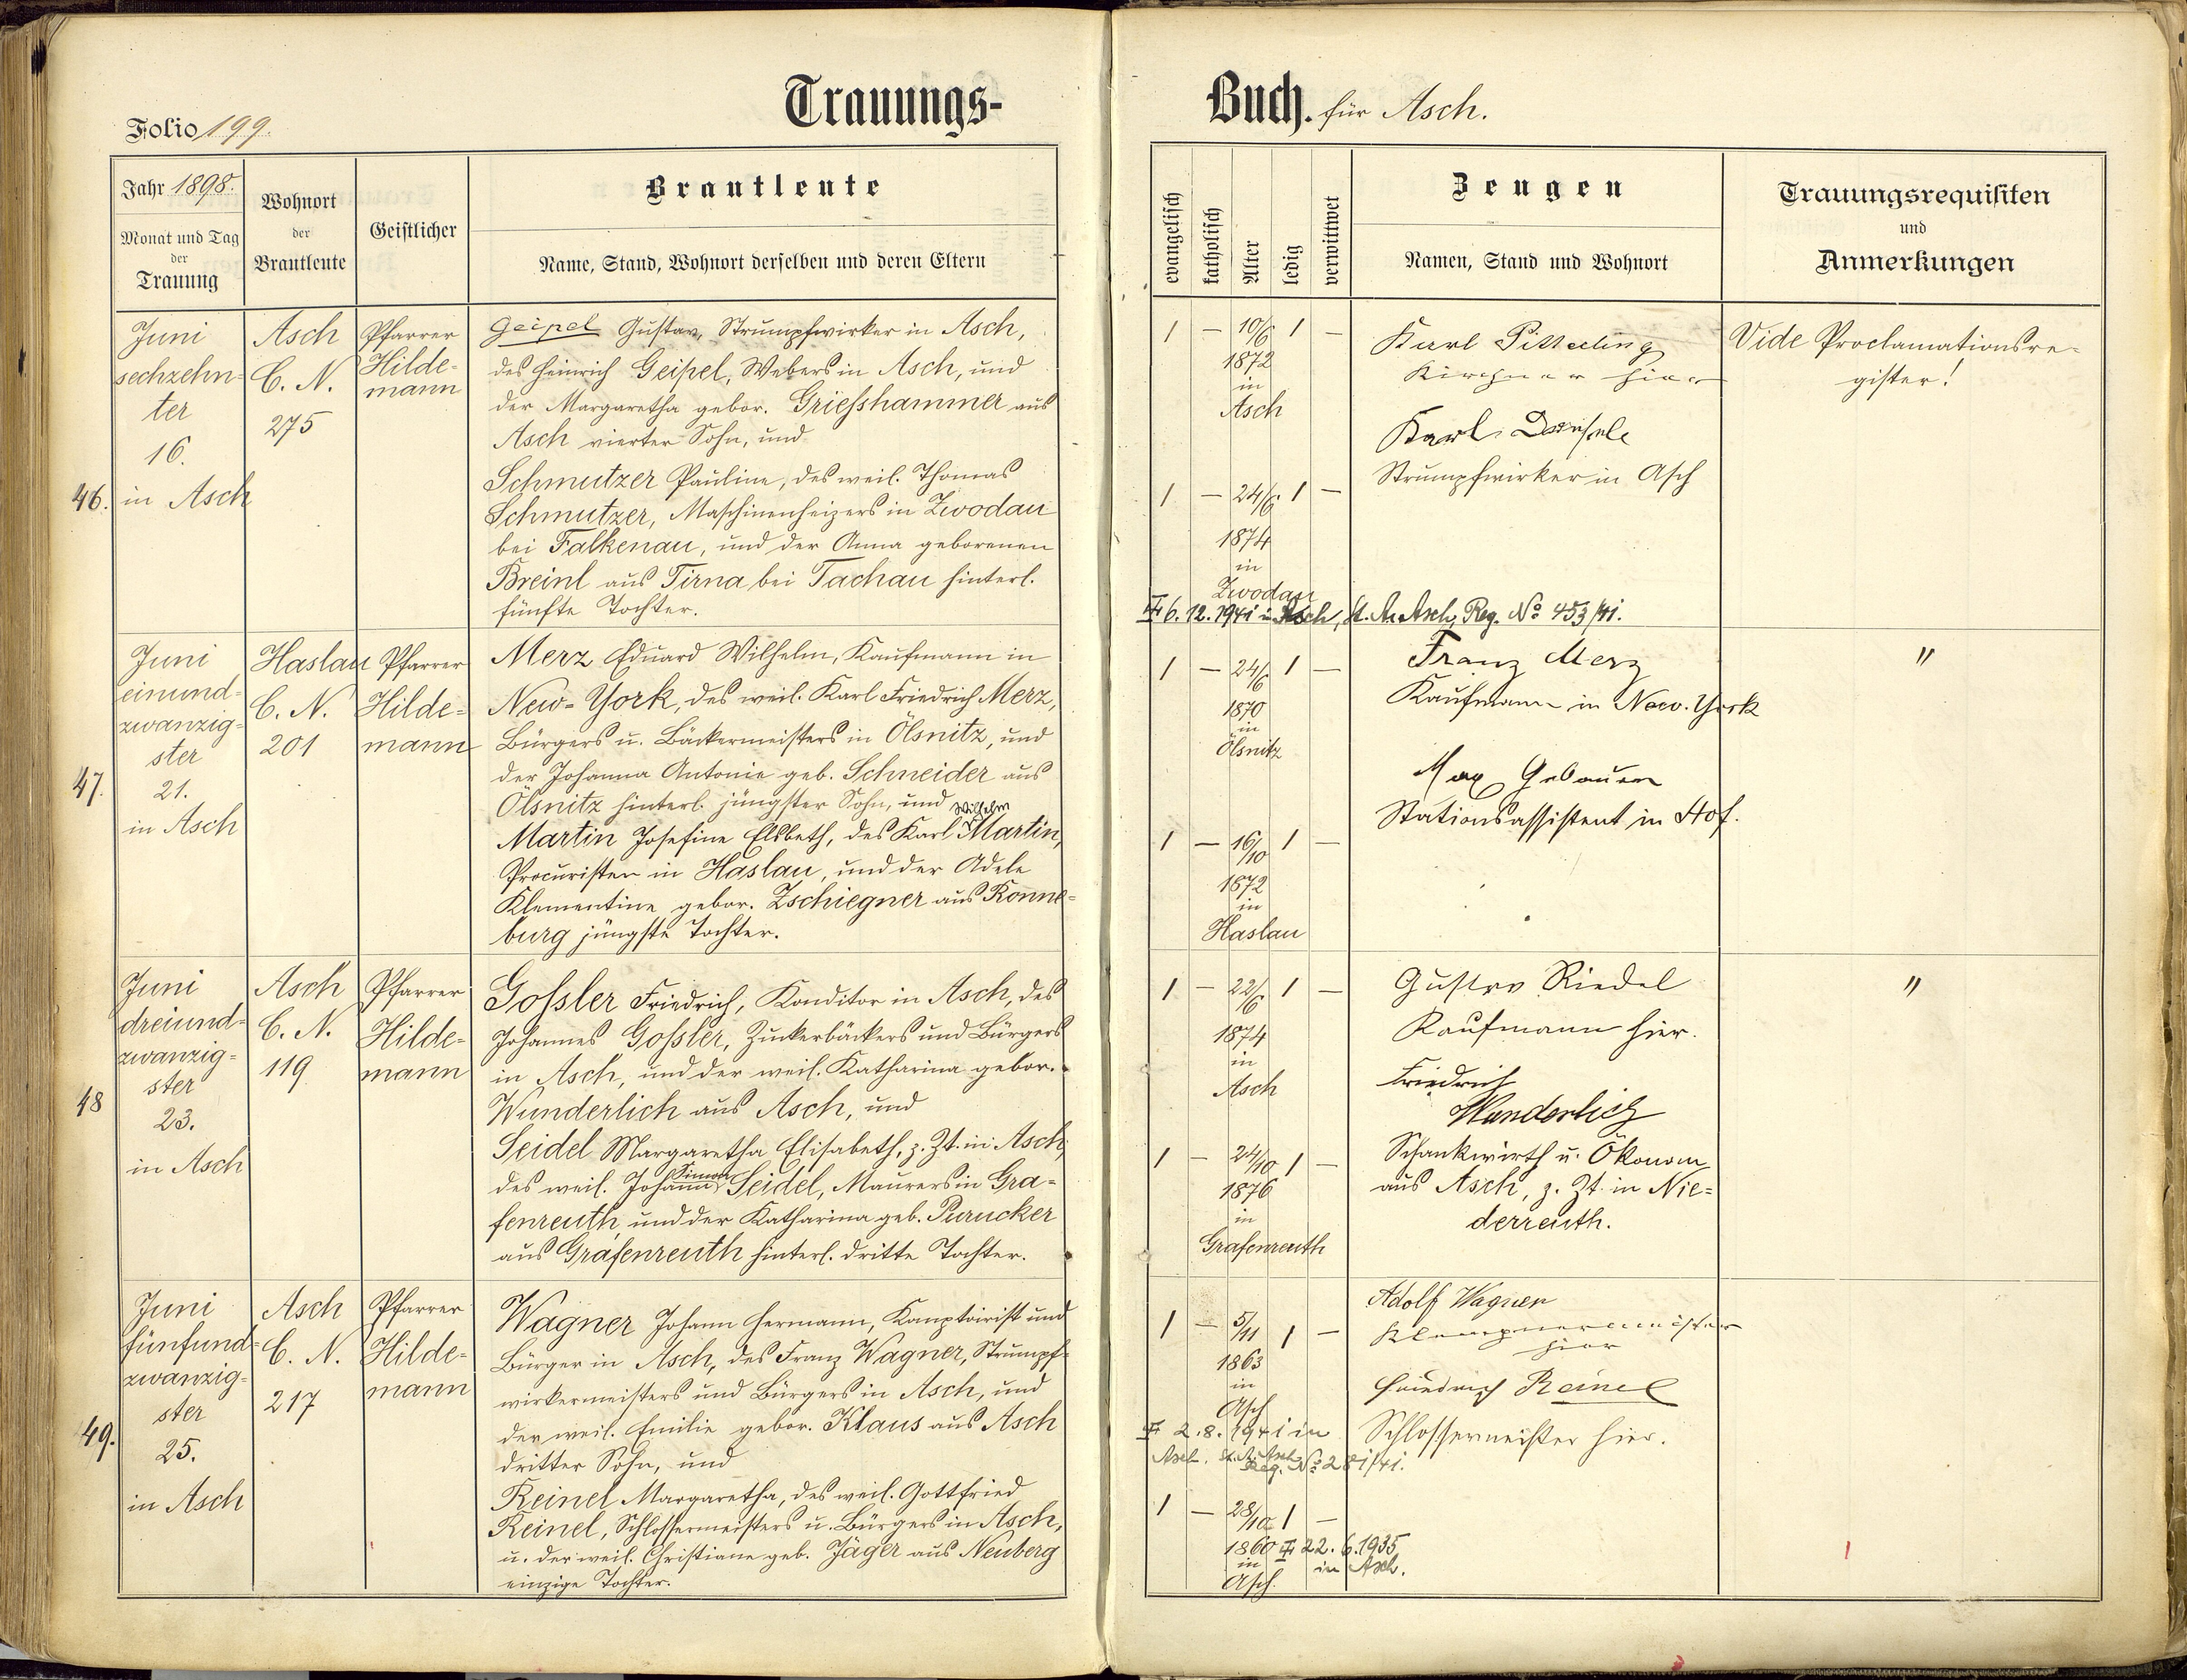 Trauungs-
Folio 199.
Jahr 1898.
Monat und Tag
der
Trauung
Wohnort
der
Brautleute
Geistlicher
Brautleute
Name, Stand, Wohnort derselben und deren Eltern
Juni
sechzehn-
ter
16.
46. in Asch
Asch
C. N.
275
Pfarrer
Hilde-
mann
Geipel Gustav, Strumpfwirker in Asch,
des Heinrich Geipel, Webers in Asch, und
der Margaretha gebor. Griesshammer aus
Asch vierter Sohn, und
Schmutzer Pauline, des weil. Thomas
Schmutzer, Maschinenheizers in Zwodau
bei Falkenau, und der Anna geborenen
Breinl aus Tirna bei Tachau hinterl.
fünfte Tochter.
Juni
einund-
zwanzig-
ster
47. 21.
in Asch
Haslau
C. N.
201
Pfarrer
Hilde-
mann
Merz Eduard Wilhelm, Kaufmann in
New-York, des weil. Karl Friedrich Merz,
Bürgers u. Bäckermeisters in Ölsnitz, und
der Johanna Antonie geb. Schneider aus
Ölsnitz hinterl. jüngster Sohn, und
Martin Josefine Elsbeth, des Karl Wilhelm Martin,
Procuristen in Haslau, und der Adele
Klementine gebor. Zschiegner aus Ronne-
burg jüngste Tochter.
Juni
dreiund-
zwanzig-
ster
48 23.
in Asch
Asch
C. N.
119
Pfarrer
Hilde-
mann
Gossler Friedrich, Konditor in Asch, des
Johannes Gossler, Zuckerbäckers und Bürgers
in Asch, und der weil. Katharina gebor.
Wunderlich aus Asch, und
Seidel Margaretha Elisabeth, z. Zt. in Asch,
des weil. Johann Simon Seidel, Maurers in Gra-
fenreuth, und der Katharina geb. Purucker
aus Grafenreuth hinterl. dritte Tochter.
Juni
fünfund-
zwanzig-
ster
49. 25.
in Asch
Asch
C. N.
217
Pfarrer
Hilde-
mann
Wagner Johann Hermann, Komptoirist und
Bürger in Asch, des Franz Wagner, Strumpf-
wirkermeisters und Bürgers in Asch, und
der weil. Emilie gebor. Klaus aus Asch
dritter Sohn, und
Reinel Margaretha, des weil. Gottfried
Reinel, Schlossermeisters u. Bürgers in Asch,
u. der weil. Christiane geb. Jäger aus Neuberg
einzige Tochter.
Buch. für Asch.
evangelisch
katholisch
Alter
ledig
verwittwet
Zeugen
Namen, Stand und Wohnort
Trauungsrequisiten
und
Anmerkungen
1 – 10/6 1 –
1872
in
Asch
1 – 24/6 1 –
1874
in
Zwodau
6. 12. 1941 in Asch, St. A. Asch, Reg. No 453/41.
Karl
Kirchner hier
Karl
Strumpfwirker in Asch
Vide Proclamationsre-
gister!
1 – 24/6 1 –
1870
in
Ölsnitz
1 – 16/10 1 –
1872
in
Haslau
Franz Merz
Kaufmann in New-York
Max Gebauer
Stationsassistent in Hof.
"
1 – 22/6 1 –
1874
in
Asch
1 – 24/10 1 –
1876
in
Grafenreuth
Gustav Riedel
Kaufmann hier.
Friedrich
Wunderlich
Schankwirth u. Ökonom
aus Asch, z. Zt. in Nie-
derreuth.
"
1 – 5/11 1 –
1863
in
Asch
2. 8. 1941 in
Asch. St. A. Asch
Reg. No 281/41.
1 – 28/10 1 –
1860 22. 6. 1935
in in Asch.
Asch.
Adolf Wagner
Klempnermeister
hier
Friedrich Reinel
Schlossermeister hier.